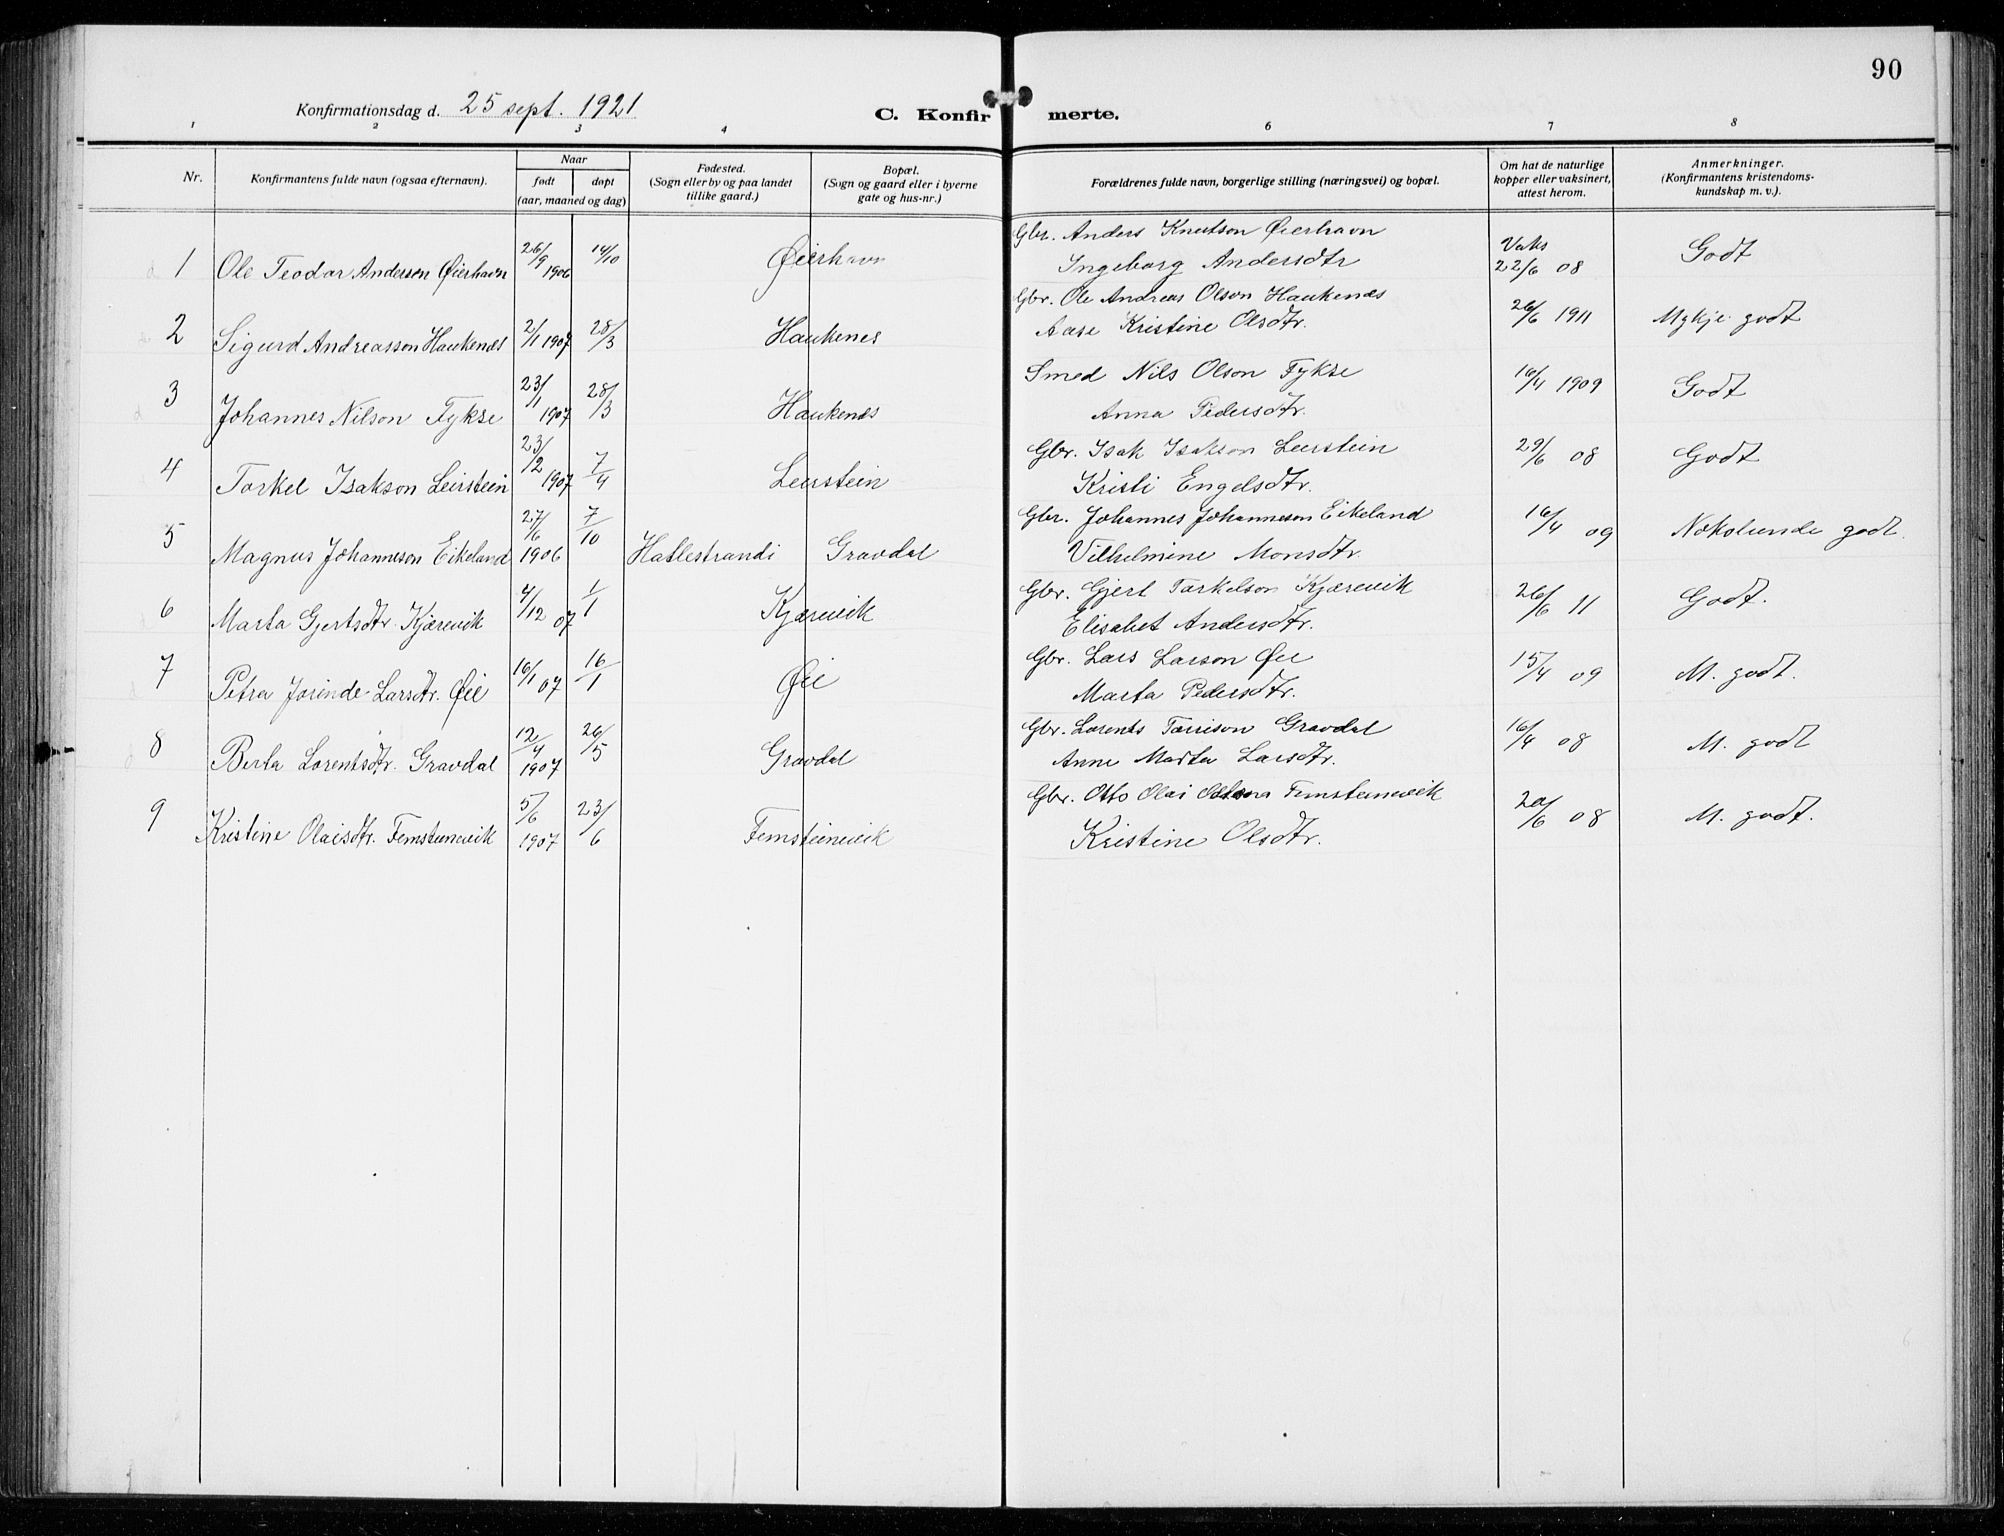 90
Konfirmationsdag d. 25 sept. 1921
C. Konfirmerte.
1 2 3 4 6 7 8
Nr.
Konfirmantens fulde navn (ogsaa efternavn).
Naar
født
døpt
(aar, maaned og dag)
Fødested.
(Sogn eller by og paa landet
tillike gaard.)
Bopæl.
(Sogn og gaard eller i byerne
gate og hus-nr.)
Forældrenes fulde navn, borgerlige stilling (næringsvei) og bopæl.
Om hat de naturlige
kopper eller vaksinert,
attest herom.
Anmerkninger.
(Konfirmantens kristendoms-
kundskap m. v.)
1 Ole Teodor Andersen Øierhavn 26/9 1906 14/10 Øierhavn Gbr. Anders Knutson Øierhavn Vaks 22/6 08 Godt
Ingeborg Andersdtr
2 Sigurd Andreasson Haukenæs 2/1 1907 28/3 Haukenes Gbr. Ole Andreas Olson Haukenæs 26/6 1911 Mykje godt
Aase Kristine Olsdtr.
3 Johannes Nilson Fykse 23/1 1907 28/3 Haukenæs Smed Nils Olson Fykse 16/4 1909 Godt
Anna Pedersdtr.
4 Torkel Isakson Leirstein 23/2 1907 7/4 Leirstein Gbr. Isak Isakson Leirstein 29/6 08 Godt
Kristi Engelsdtr.
5 Magnus Johanneson Eikeland 27/6 1906 7/10 Hatlestrandi Gravdal Gbr. Johannes Johanneson Eikeland 16/4 09 Nokolunde godt.
Vilhelmine Monsdtr.
6 Marta Gjertsdtr. Kjærevik 4/12 07 1/1 Kjærevik Gbr. Gjert Torkelson Kjærevik 26/6 11 Godt.
Elisabet Andersdtr.
7 Petra Jorinde Larsdtr. Øie 16/1 07 16/1 Øie Gbr. Lars Larson Øie 15/4 09 M. godt.
Marta Pedersdtr.
8 Berta Lorentsdtr. Gravdal 12/4 1907 26/5 Gravdal Gbr. Lorents Torrison Gravdal 16/4 08 M. godt
Anne Marta Larsdtr.
9 Kristine Olaisdtr. Femsteinevik 5/6 1907 23/6 Femsteinevik Gbr. Otto Olai Femsteinevik 20/6 08 M. godt.
Kristine Olsdtr.